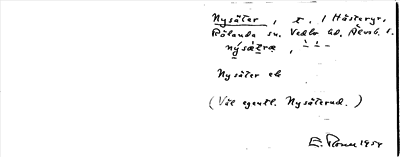 Nysäter, t. / Hästeryr,
Rölanda sn. Vedbo hd. Älvsb. l.
nýsætræ,
Nysäter eb
(Väl egentl. Nysäterud.)
E. 1954